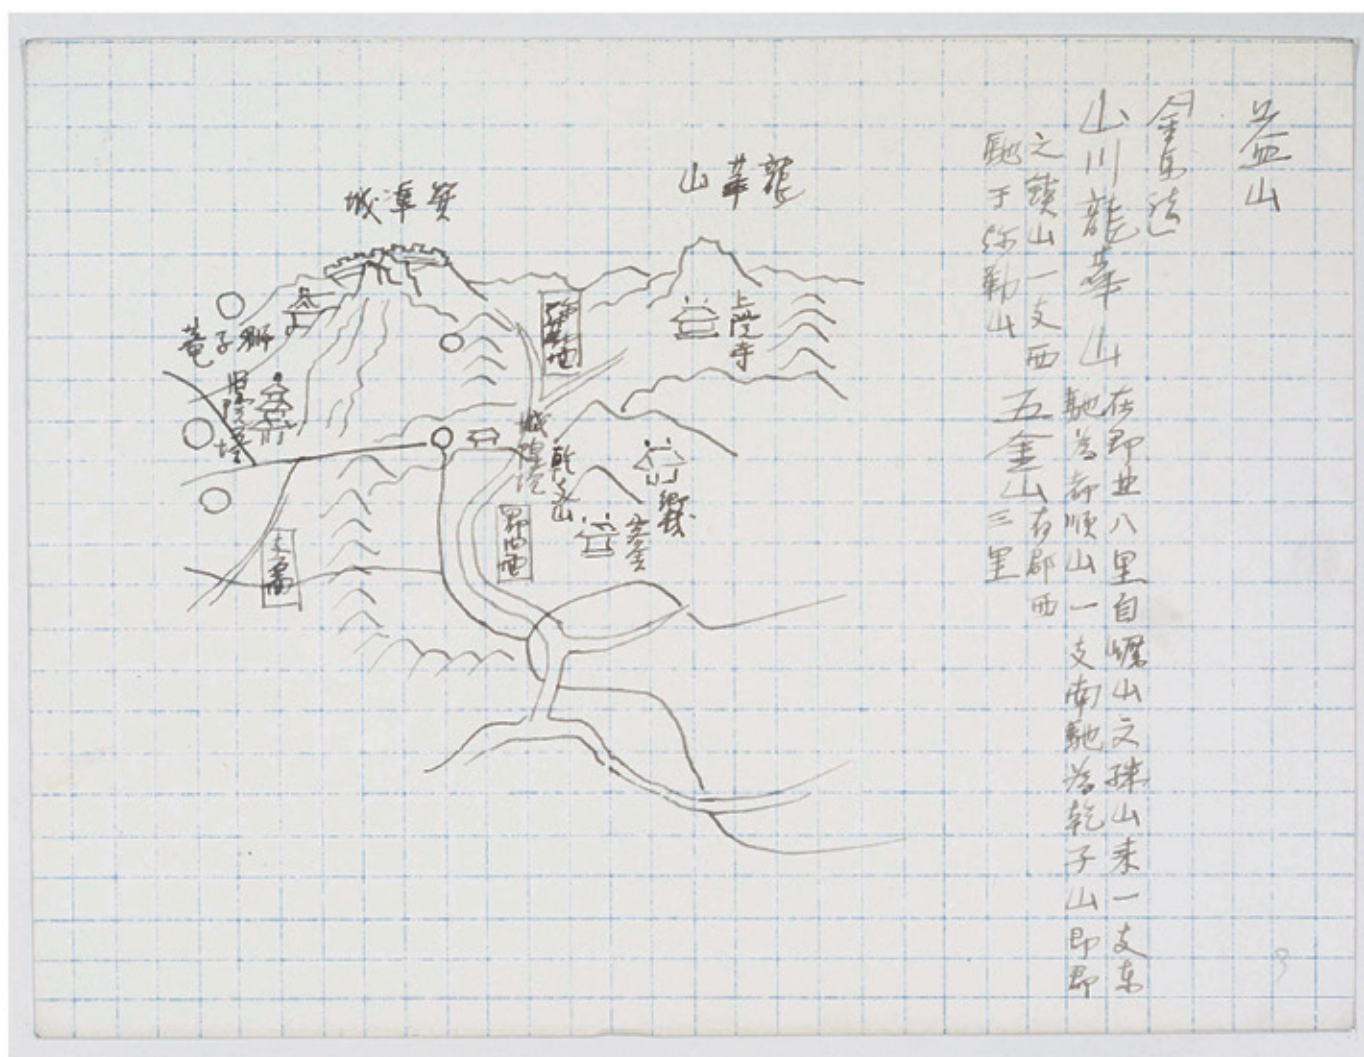 益山
金馬誌
山川龍華山
在郡北八里自
山文殊山来一支东
馳為都順山一支南馳為乾子山即郡
之鎮山一支西
馳于弥勒山
五金山
在郡西
三里
龍華山
箕準城
上院寺
獅子菴
城隍
乾子山
郷校
郡内面